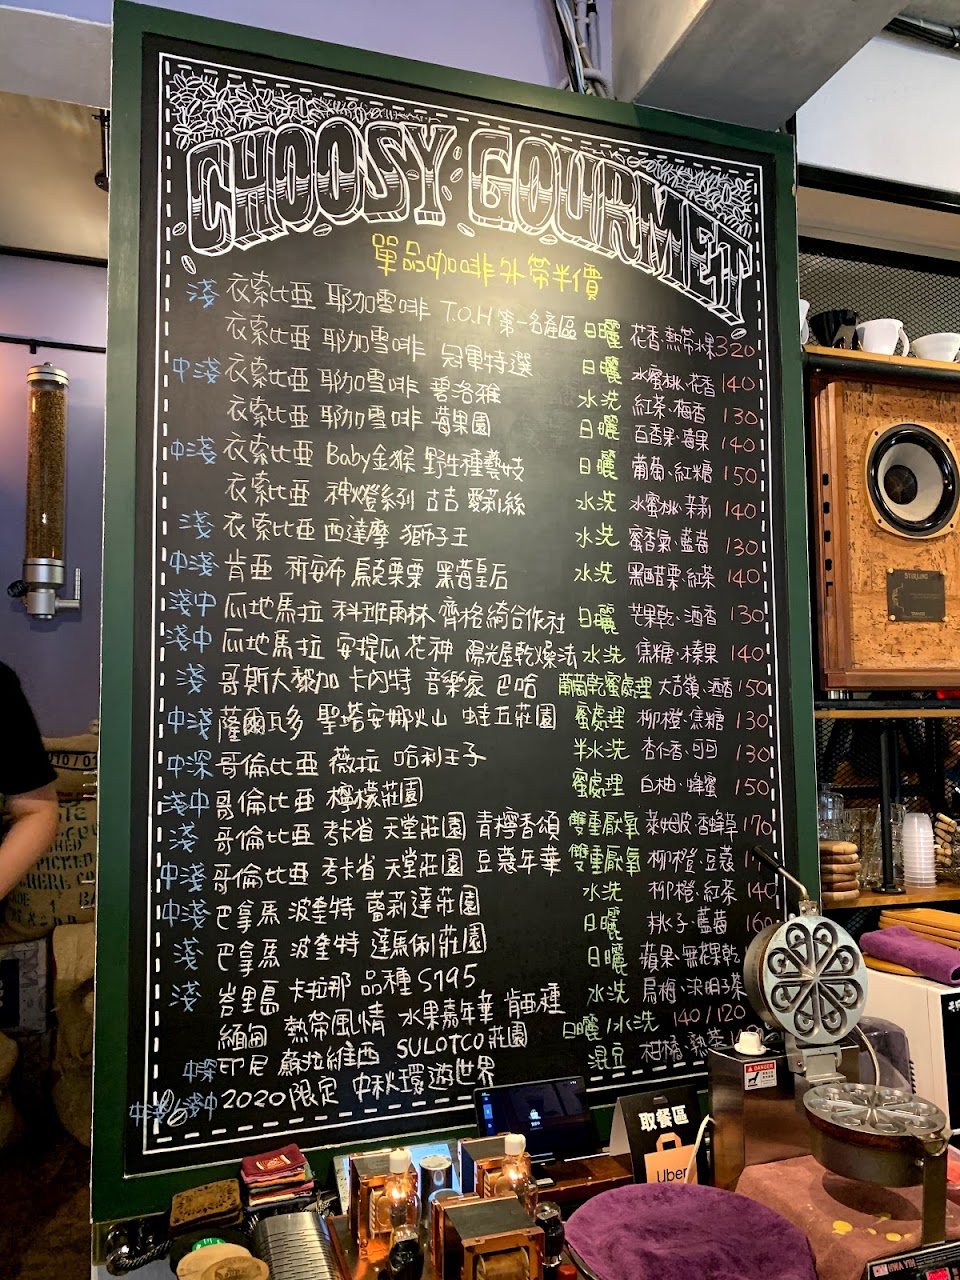 CHOOSY GOURMET
單品咖啡外帶半價
淺 衣索比亞 耶加雪啡 T.O.H第一名產區 日曬 花香.熱帶水果 320
衣索比亞 耶加雪啡 冠軍特選 日曬 水蜜桃.花香 140
中淺 衣索比亞 耶加雪啡 碧洛雅 水洗 紅茶.梅香 130
衣索比亞 耶加雪啡 莓果園 日曬 百香果.莓果 140
中淺 衣索比亞 Baby金猴 野生種藝妓 日曬 葡萄.紅糖 150
衣索比亞 神燈系列 古吉 愛莉絲 水洗 水蜜桃.茉莉 140
淺 衣索比亞 西達摩 獅子王 水洗 蜜香氣.藍莓 130
中淺 肯亞 祈安布 烏克栗栗 黑莓皇后 水洗 黑醋栗.紅茶 140
淺中 瓜地馬拉 科班雨林 齊格綺合作社 日曬 芒果乾.酒香 130
淺中 瓜地馬拉 安提瓜 花神 陽光屋乾燥法 水洗 焦糖.榛果 140
淺 哥斯大黎加 卡內特 音樂家 巴哈 葡萄乾蜜處理 大吉嶺.酒香 150
中淺 薩爾瓦多 聖塔安娜火山 蛙丘莊園 蜜處理 柳橙.焦糖 130
中深 哥倫比亞 薇拉 哈利王子 半水洗 杏仁香.可可 130
淺中 哥倫比亞 檸檬莊園 蜜處理 白柚.蜂蜜 150
淺 哥倫比亞 考卡省 天堂莊園 青檸香頌 雙重厭氧 萊姆皮.香蜂草 170
中淺 哥倫比亞 考卡省 天堂莊園 豆蔻年華 雙重厭氧 柳橙.豆蔻
中淺 巴拿馬 波奎特 蕾莉達莊園 水洗 柳橙.紅茶 140
淺 巴拿馬 波奎特 達馬俐莊園 日曬 桃子.藍莓 160
淺 峇里島 卡拉那 品種S795 日曬 蘋果.無花果乾
緬甸 熱帶風情 水果嘉年華 肯西種 水洗 烏梅.決明子茶
中深 印尼 蘇拉維西 SULOTCO莊園 日曬/水洗 140/120
中淺/淺中 2020限定 中秋環遊世界 混豆 柑橘.熱茶
取餐區
Uber
DANGER
HWA YIH